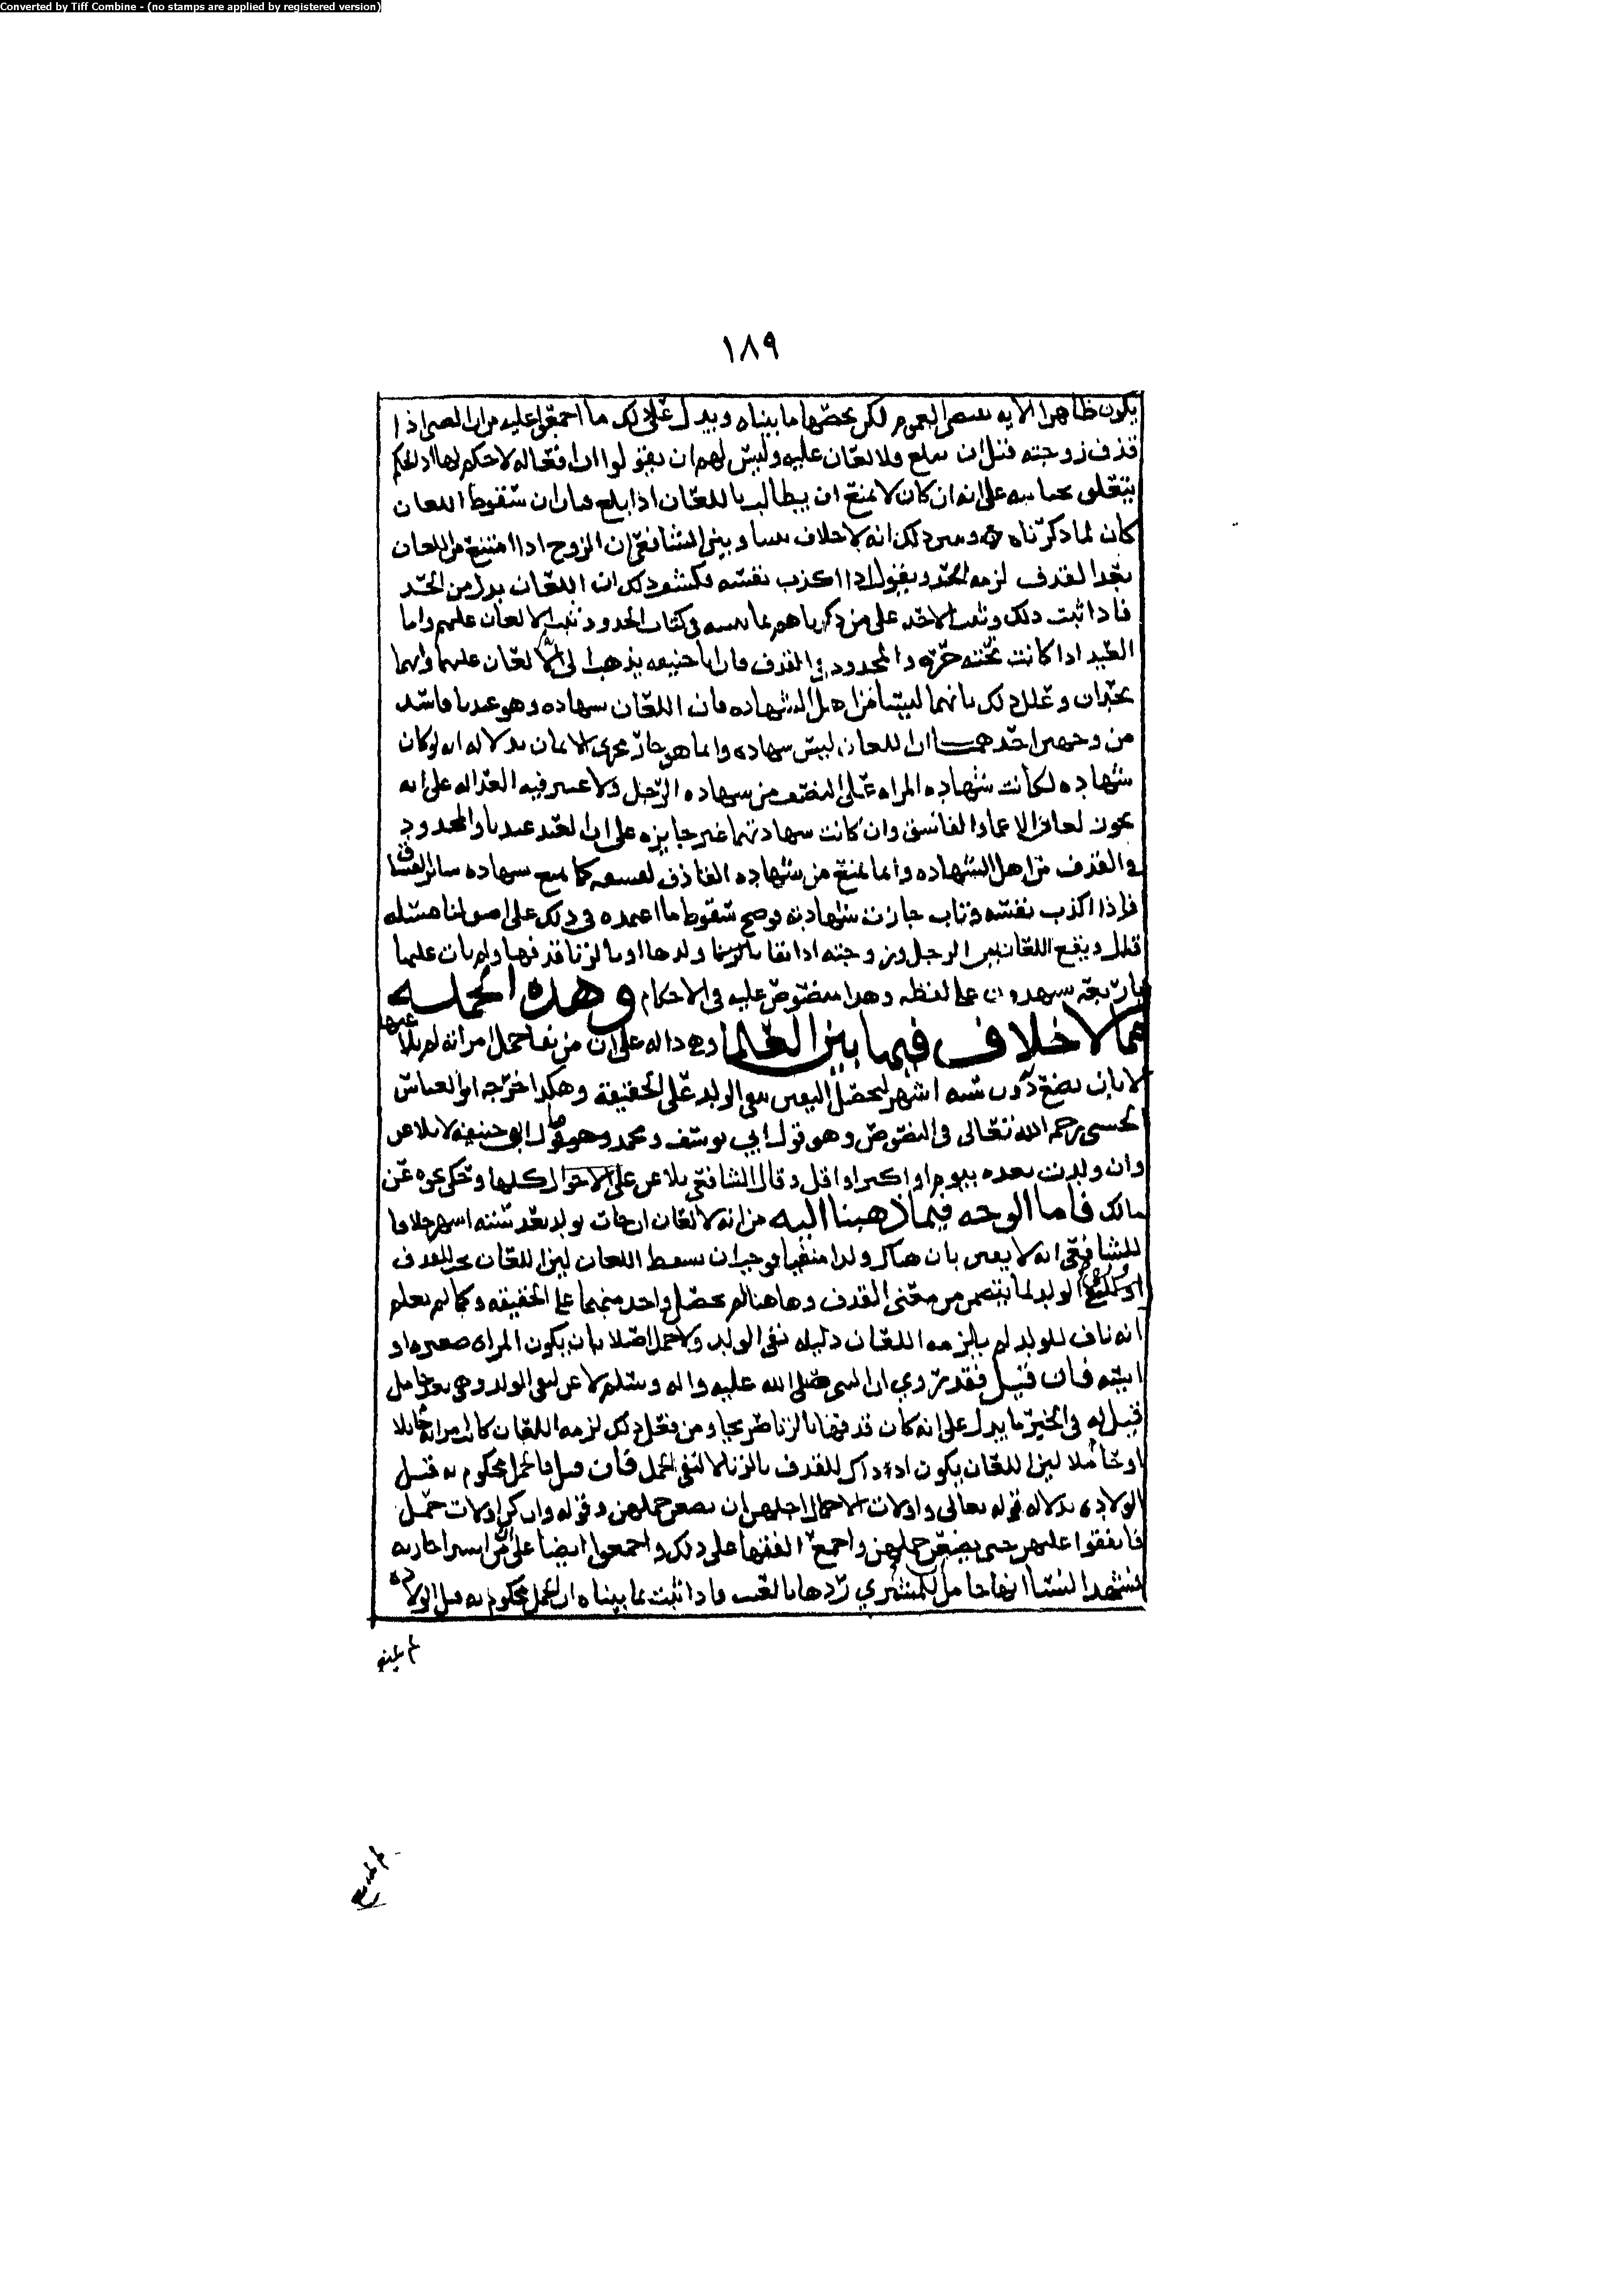 Converted by Tiff Combine - (no stamps are applied by registered version)
١٨٩
يكون ظاهر الايه يقتضى العموم لكن يخصها ما بيناه ويدل على ذلك ما اجمعوا عليه من ان الصبى اذا
قذف زوجته قبل ان يبلغ فلا لعان عليه وليس لهم ان يقولوا ان افعاله لا حكم لها اذ الحكم
يتعلق على انه ان كان لا يمنع ان يطالب باللعان اذا بلغ فبان ان سقوط اللعان
كان لما ذكرناه ويبين ذلك انه لا خلاف بيننا وبين الشافعى ان الزوج اذا امتنع من اللعان
بعد القذف لزمه الحد ويقول اذا اكذب نفسه فكشف ذلك ان اللعان بدل من الحد
فاذا ثبت ذلك وثبت الا حد على من ذكرناهم بما نبينه فى كتاب الحدود ثبت الا لعان عليهم واما
العبد اذا كانت تحته حره والمحدود فى القذف فان ابا حنيفه يذهب الى الا لعان عليهما وانهما
يحدان وعلل ذلك بانهما ليسا من اهل الشهاده فان اللعان شهاده وهو عندنا فاسد
من وجهين احدهما ان اللعان ليس شهاده وانما هو جار مجرى الايمان بدلاله انه لو كان
شهاده لكانت شهاده المراه على النصف من شهاده الرجل ولا عتبر فيه العداله على انه
يجوز لعان الاعما والفاسق وان كانت شهادتهما غير جايزه على ان العبد عندنا والمحدود
فى القذف من اهل الشهاده وانما يمنع من شهاده القاذف لفسقه كما يمنع شهاده سائر الفساق
فاذا اكذب نفسه وتاب جازت شهادته وصح سقوط ما اعتمده فى ذلك على اصولنا مسئله
قال ويقع اللعان بين الرجل وزوجته اذا نفا ولدها او بالزنا قذفها ولم يات عليها
باربعه يشهدون على لفظه وهذا منصوص عليه فى الاحكام وهذه الجمله
مما لا خلاف فيها بين العلما وهى داله على ان من نفا حمل امراته لم يلاعنها
الا بان يضع دون سته اشهر ليحصل اليقين بنفى الولد على الحقيقة وهكذا خرجه ابو العباس
الحسنى رحمه الله تعالى فى النصوص وهو قول ابي يوسف ومحمد وهو قول ابو حنيفه لا يلاعن
وان ولدت بعده بيوم او اكثر او اقل وقال الشافعى يلاعن على الاحوال كلها وحكى نحوه عن
مالك فاما الوجه فيما ذهبنا اليه من انه لا لعان ان جات بولد بعد سته اشهر خلافا
للشافعى انه لا يقين بان هناك ولدا منفيا فوجب ان يسقط اللعان لان اللعان يجب للقذف
او لنفى الولد لما يتضمن من معنى القذف وهاهنا لم يحصل واحد منهما على الحقيقه وكما لم يعلم
انه ناف للولد لم يلزمه اللعان دليله نفى الولد ولا حمل اصلا بان يكون المراه صغيره او
ايسه فان قيل فقد روي ان النبى صلى الله عليه واله وسلم لاعن لنفى الولد وهى بعد حامل
قيل له فى الخبر ما يدل على انه كان قذفها بالزنا صريحا ومن فعل ذلك لزمه اللعان كانت امراته حايلا
او حاملا لان اللعان يكون اذ ذاك للقذف بالزنا لا لنفى الحمل فان قيل فالحمل محكوم به قبل
الولاده بدلاله قوله تعالى واولات الاحمال اجلهن ان يضعن حملهن وقوله وان كن اولات حمل
فانفقوا عليهن حتى يضعن حملهن واجمع الفقها على ذلك واجمعوا ايضا على من اشترا جاريه
فشهد النسا انها حامل للمشتري ردها بالعيب فاذا ثبت بما بيناه ان الحمل محكوم به قبل الولاده